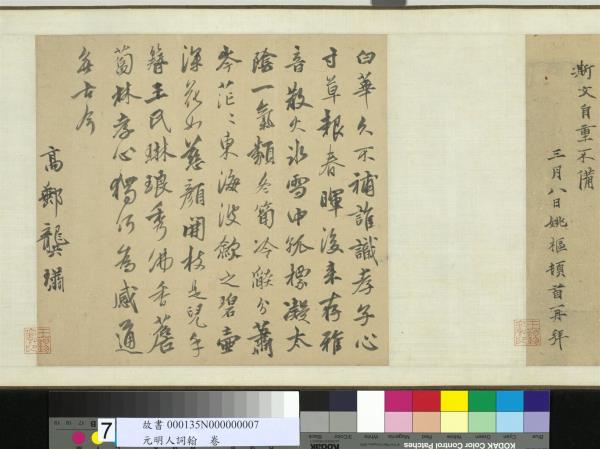 文自重不備
三月八日姚樞頓首再拜
白華久不補誰識孝子心
寸草報春暉後来存雅
音散火冰雪中孤標凝太
陰一氣類冬筍冷艷分蕭
岑茫〻東海波歛之碧壺
深花如慈顔開枝是兒手
簪王氏琳琅秀佛香薝
蔔林孝心獨何為感通
無古今
高郵龔璛
7
故書 000135N000000007
元明人詞翰 卷
KODAK Color Control Patches
Blue Cyan Green Yellow Red Magenta White